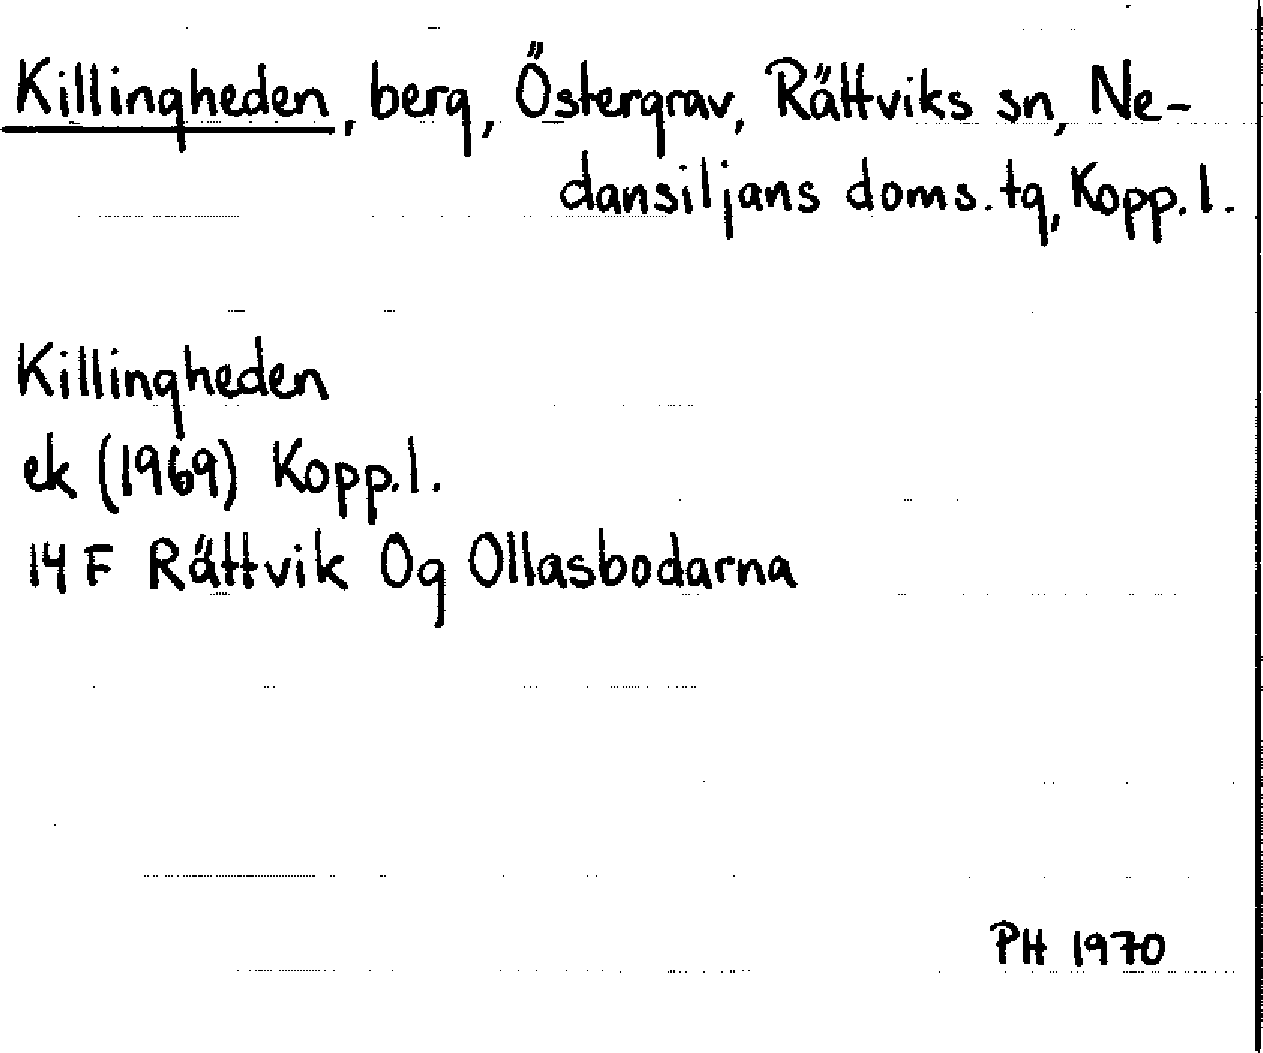 Killingheden, berg, Östergrav, Rättviks sn, Ne-
dansiljans doms.tg, Kopp.l.
Killingheden
ek (1969) Kopp.l.
14 F Rättvik 0g Ollasbodarna
PH 1970